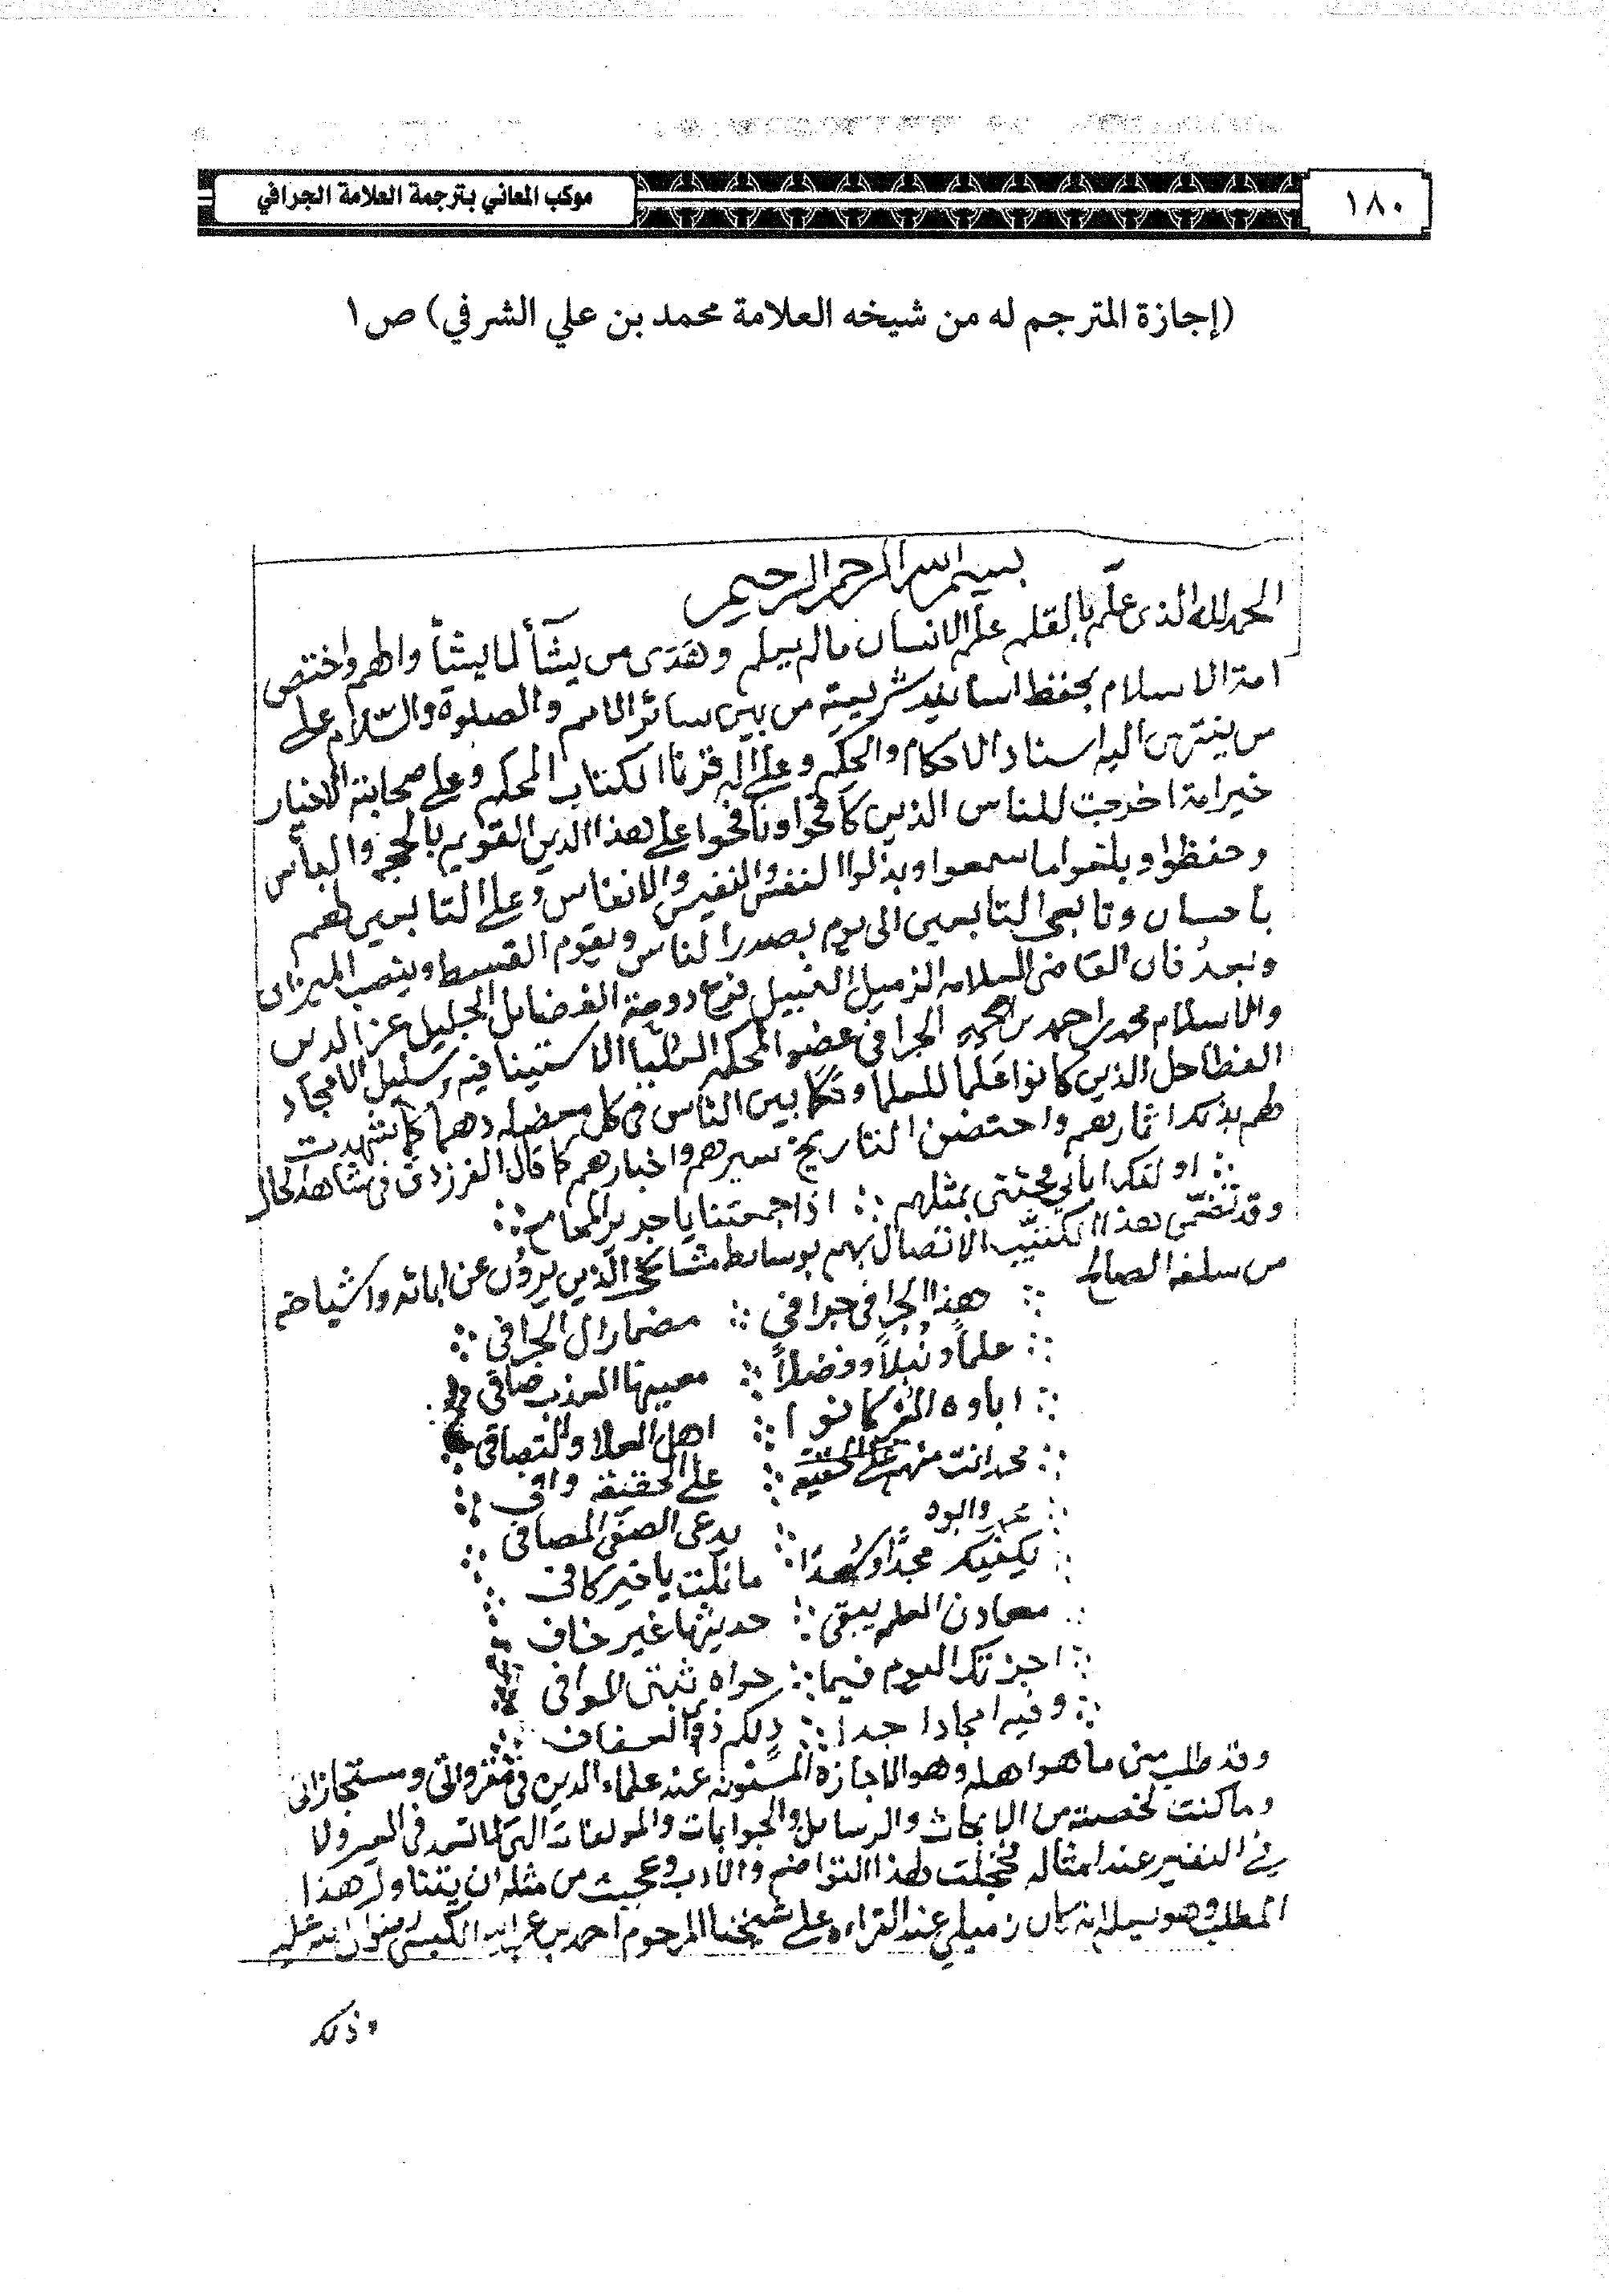 ١٨٠
موكب المعاني بترجمة العلامة الجرافي
(إجازة المترجم له من شيخه العلامة محمد بن علي الشرفي) ص١
بسم الله الرحمن الرحيم
الحمد لله الذى علّم بالقلم علم الانسان مالم يعلم وهَدَى من يشآء لما يشآء والهم واختص
امة الاسلام بحفظ اسانيد شريعته من بين سائر الامم والصلوة والسّلام على
من ينتهى اليه اسناد الاحكام والحِكَم وعلى اله قرنا الكتاب المحكم وعلى صحابته الاخيار
خير امة اخرجت للناس الذين كافحوا ونافحوا على هذا الدين القويم بالحجج والبأس
وحفظوا وبلغوا ما سمعوا وبذلوا النفس والنفيس والانفاس وعلى التابعين لهم
باحسان وتابعى التابعين الى يوم يصدر الناس ويقوم القسط وينصب الميزان
وبعدُ فان القاضى العلامه الزميل النبيل فرع دوحة الفضايل الجليل عز الدين
والاسلام محمد بن احمد بن محمد الجرافى عضو المحكمه العليا الاستينافيه وسليل الامجاد
الفطاحل الذين كانوا عَلَما للعلما وحَكَما بين الناس فى كل معضله دهما كما شهدت
لهم بذلك اثارهم واحتضن التاريخ سيرهم واخبارهم كما قال الفرزدق فى شاهد الحال
اولئك ابائي فجئنى بمثلهم ∴ اذا جمعتنا يا جرير المجامع ∴
وقد تغشّى هذا الكتيّب الاتصال بهم بوساىط مشائخى الّذين يروُن عن ابائه واشياخه
من سلفه الصالح
هذا الجرافى جرافى ∴ مضمار ال الجرافى ∴
علماً ونُبلاً وفضلاً ∴ معينها العذب صافى
اباوه الغر كانوا ∴ اهل العلا والتصافى
محمد انت منهم ∴ على الحقيقه وافى
عم والبوه ∴ يدعى الصفَى المصافى
يكفيك مجدًا وَحمدًا ∴ ما نلت يا خير كافى
معادن العلم يبقى ∴ حديثها غير خاف
اجزتك اليوم فيما ∴ حواه ثبتى الموافى
وفيه امجاد جدا ∴ دلكم ذو العفاف
وقد طلب منى ما هو اهله وهو الاجازة المسنونه عند علماء الدين فى مقرواتى ومستجازاتى
وما كنت لخصته من الابحاث والرسايل والجوابات والمولفات التى لا تعد فى العير ولا
في النفير عند امثاله فخجلت لهذا التواضع والادب وعجبت من مثله ان يتناول هذا
المطلب وهو يعلم انه كان زميلي عند القراءه على شيخنا المرحوم احمد بن عبدالله الكبسى رضوان الله عليه
وذلك